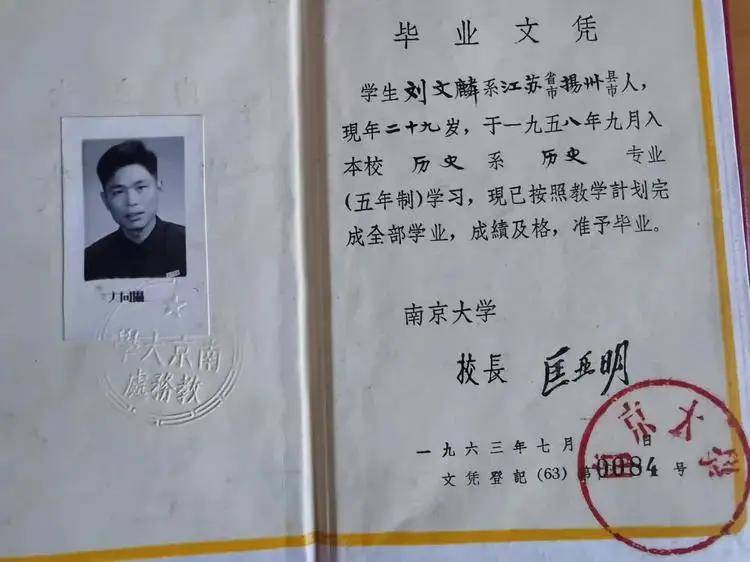 南京大學
教務處
毕业文凭
学生刘文麟系江苏省市揚州县市人,
現年二十九岁,于一九五八年九月入
本校 历史 系 历史 专业
(五年制)学习,現已按照教学計划完
成全部学业,成績及格,准予毕业。
南京大学
校長 匡亚明
一九六三年七月 日
文凭登記(63)第0084号